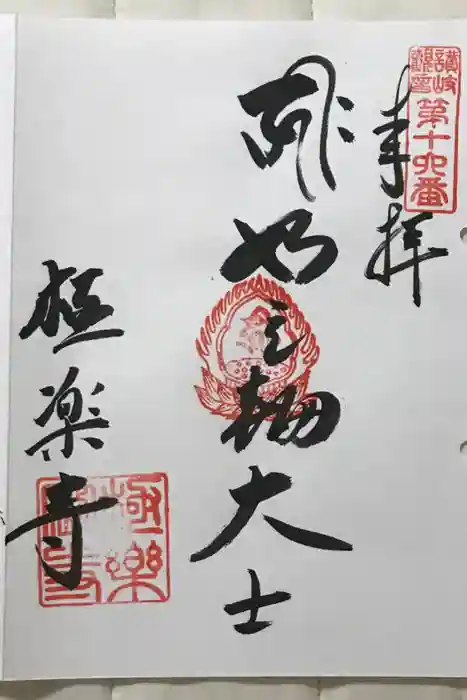 奉拝
讃岐
觀音
第十六番
如意輪大士
極楽寺
極樂